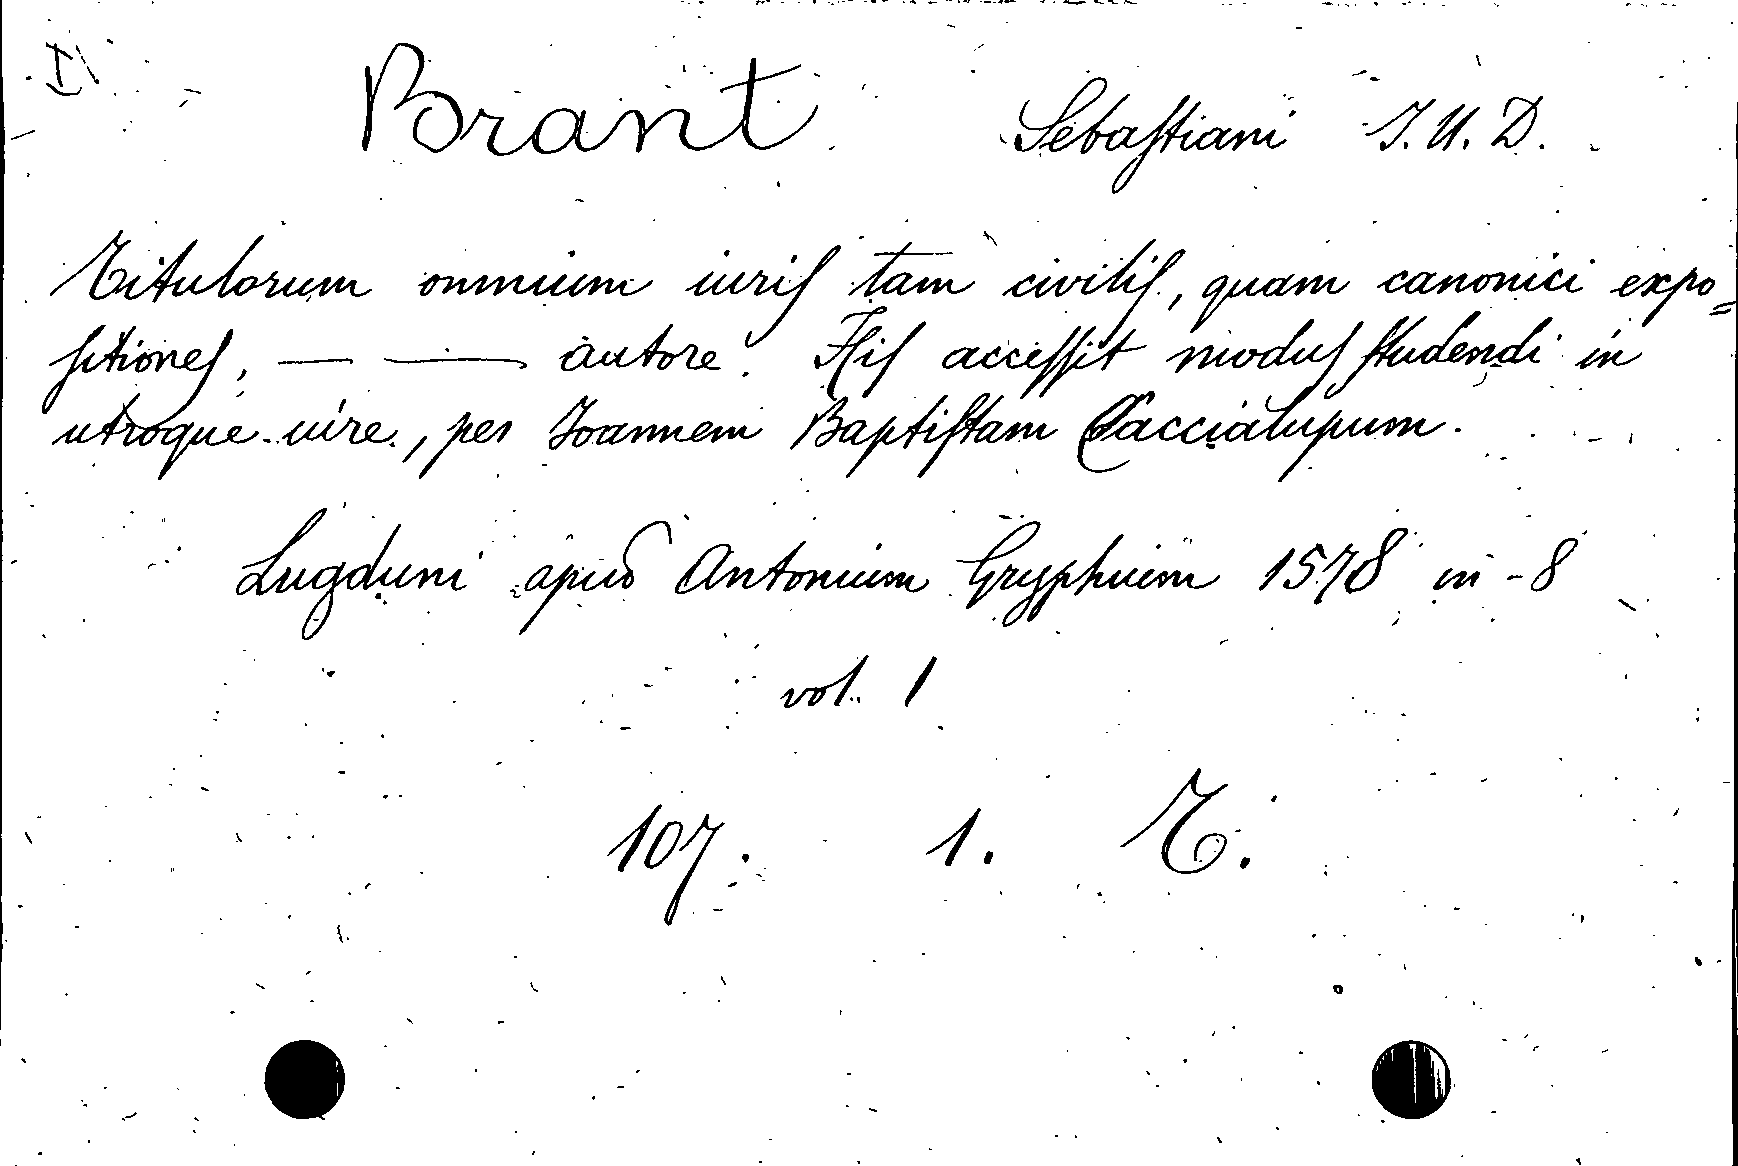 I
Brant Sebaſtiani J. U. D.
Titulorum omnium iuriſ tam civiliſ, quam canonici expo=
ſitioneſ, — — autore. Hiſ acceſſit moduſ ſtudendi in
utroque iure, per Joannem Baptiſtam Caccialupum.
Lugduni apud Antonium Gryphium 1578 in-8
vol. 1
107. 1. T.